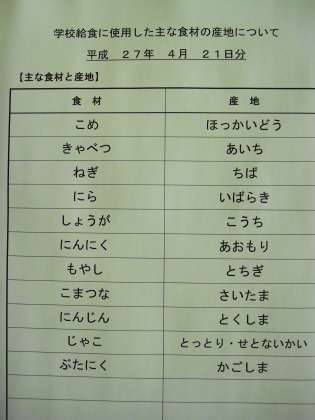 学校給食に使用した主な食材の産地について
平成　２７年　４月　２１日分
【主な食材と産地】
食　材　産　地
こめ　ほっかいどう
きゃべつ　あいち
ねぎ　ちば
にら　いばらき
しょうが　こうち
にんにく　あおもり
もやし　とちぎ
こまつな　さいたま
にんじん　とくしま
じゃこ　とっとり・せとないかい
ぶたにく　かごしま